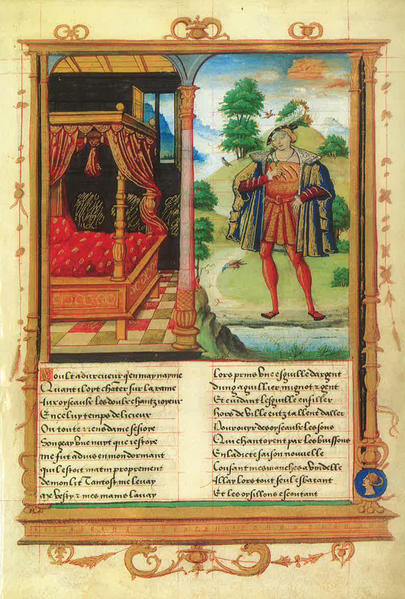 Moult a dur cueur qui en may nayme
Quant il oyt chãter sur la rame
Aux oyseaulx les doulx chantz
En celuy temps delicieux
On toute
Songeay une nuyt que iestoye
me fut aduis en mon dormant
quil estoit matin proprement
de mon lit tantost me leuay
vesty et mes mains lauay
Lors prins une esguille dargent
Dung aguillier mignot et gent
Et cuidant lesguille enfiller
Hors de ville euz tallent daller
Pour ouyr des oyseaulx les sons
Qui chantoyent par les buyssons
En ladicte saison nouvelle
Cousant mes manches a
Alay lors tout seul esbatant
Et les oysillons escoutant